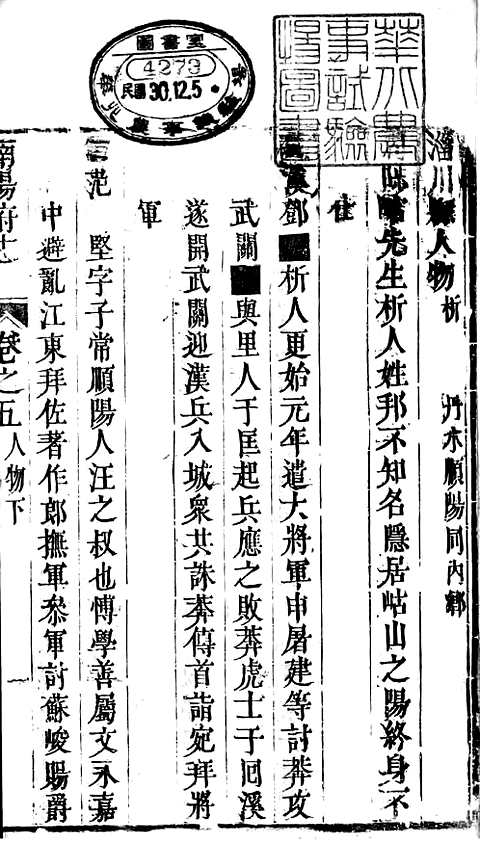 淅川縣人物 析 丹水順陽同內鄉
先生析人姓邦不知名隱居岵山之陽終身不
仕
漢鄧 析人更始元年遣大將軍申屠建等討莽攻
武關 與里人于匡起兵應之敗莽虎士于囘溪
遂開武關迎漢兵入城衆共誅莽傳首詣宛拜將
軍
范 堅字子常順陽人汪之叔也博學善屬文永嘉
中避亂江東拜佐著作郎撫軍叅軍討蘇峻賜爵
南陽府志 卷之五 人物下 一
圖書室
4273
民國 30.12.5